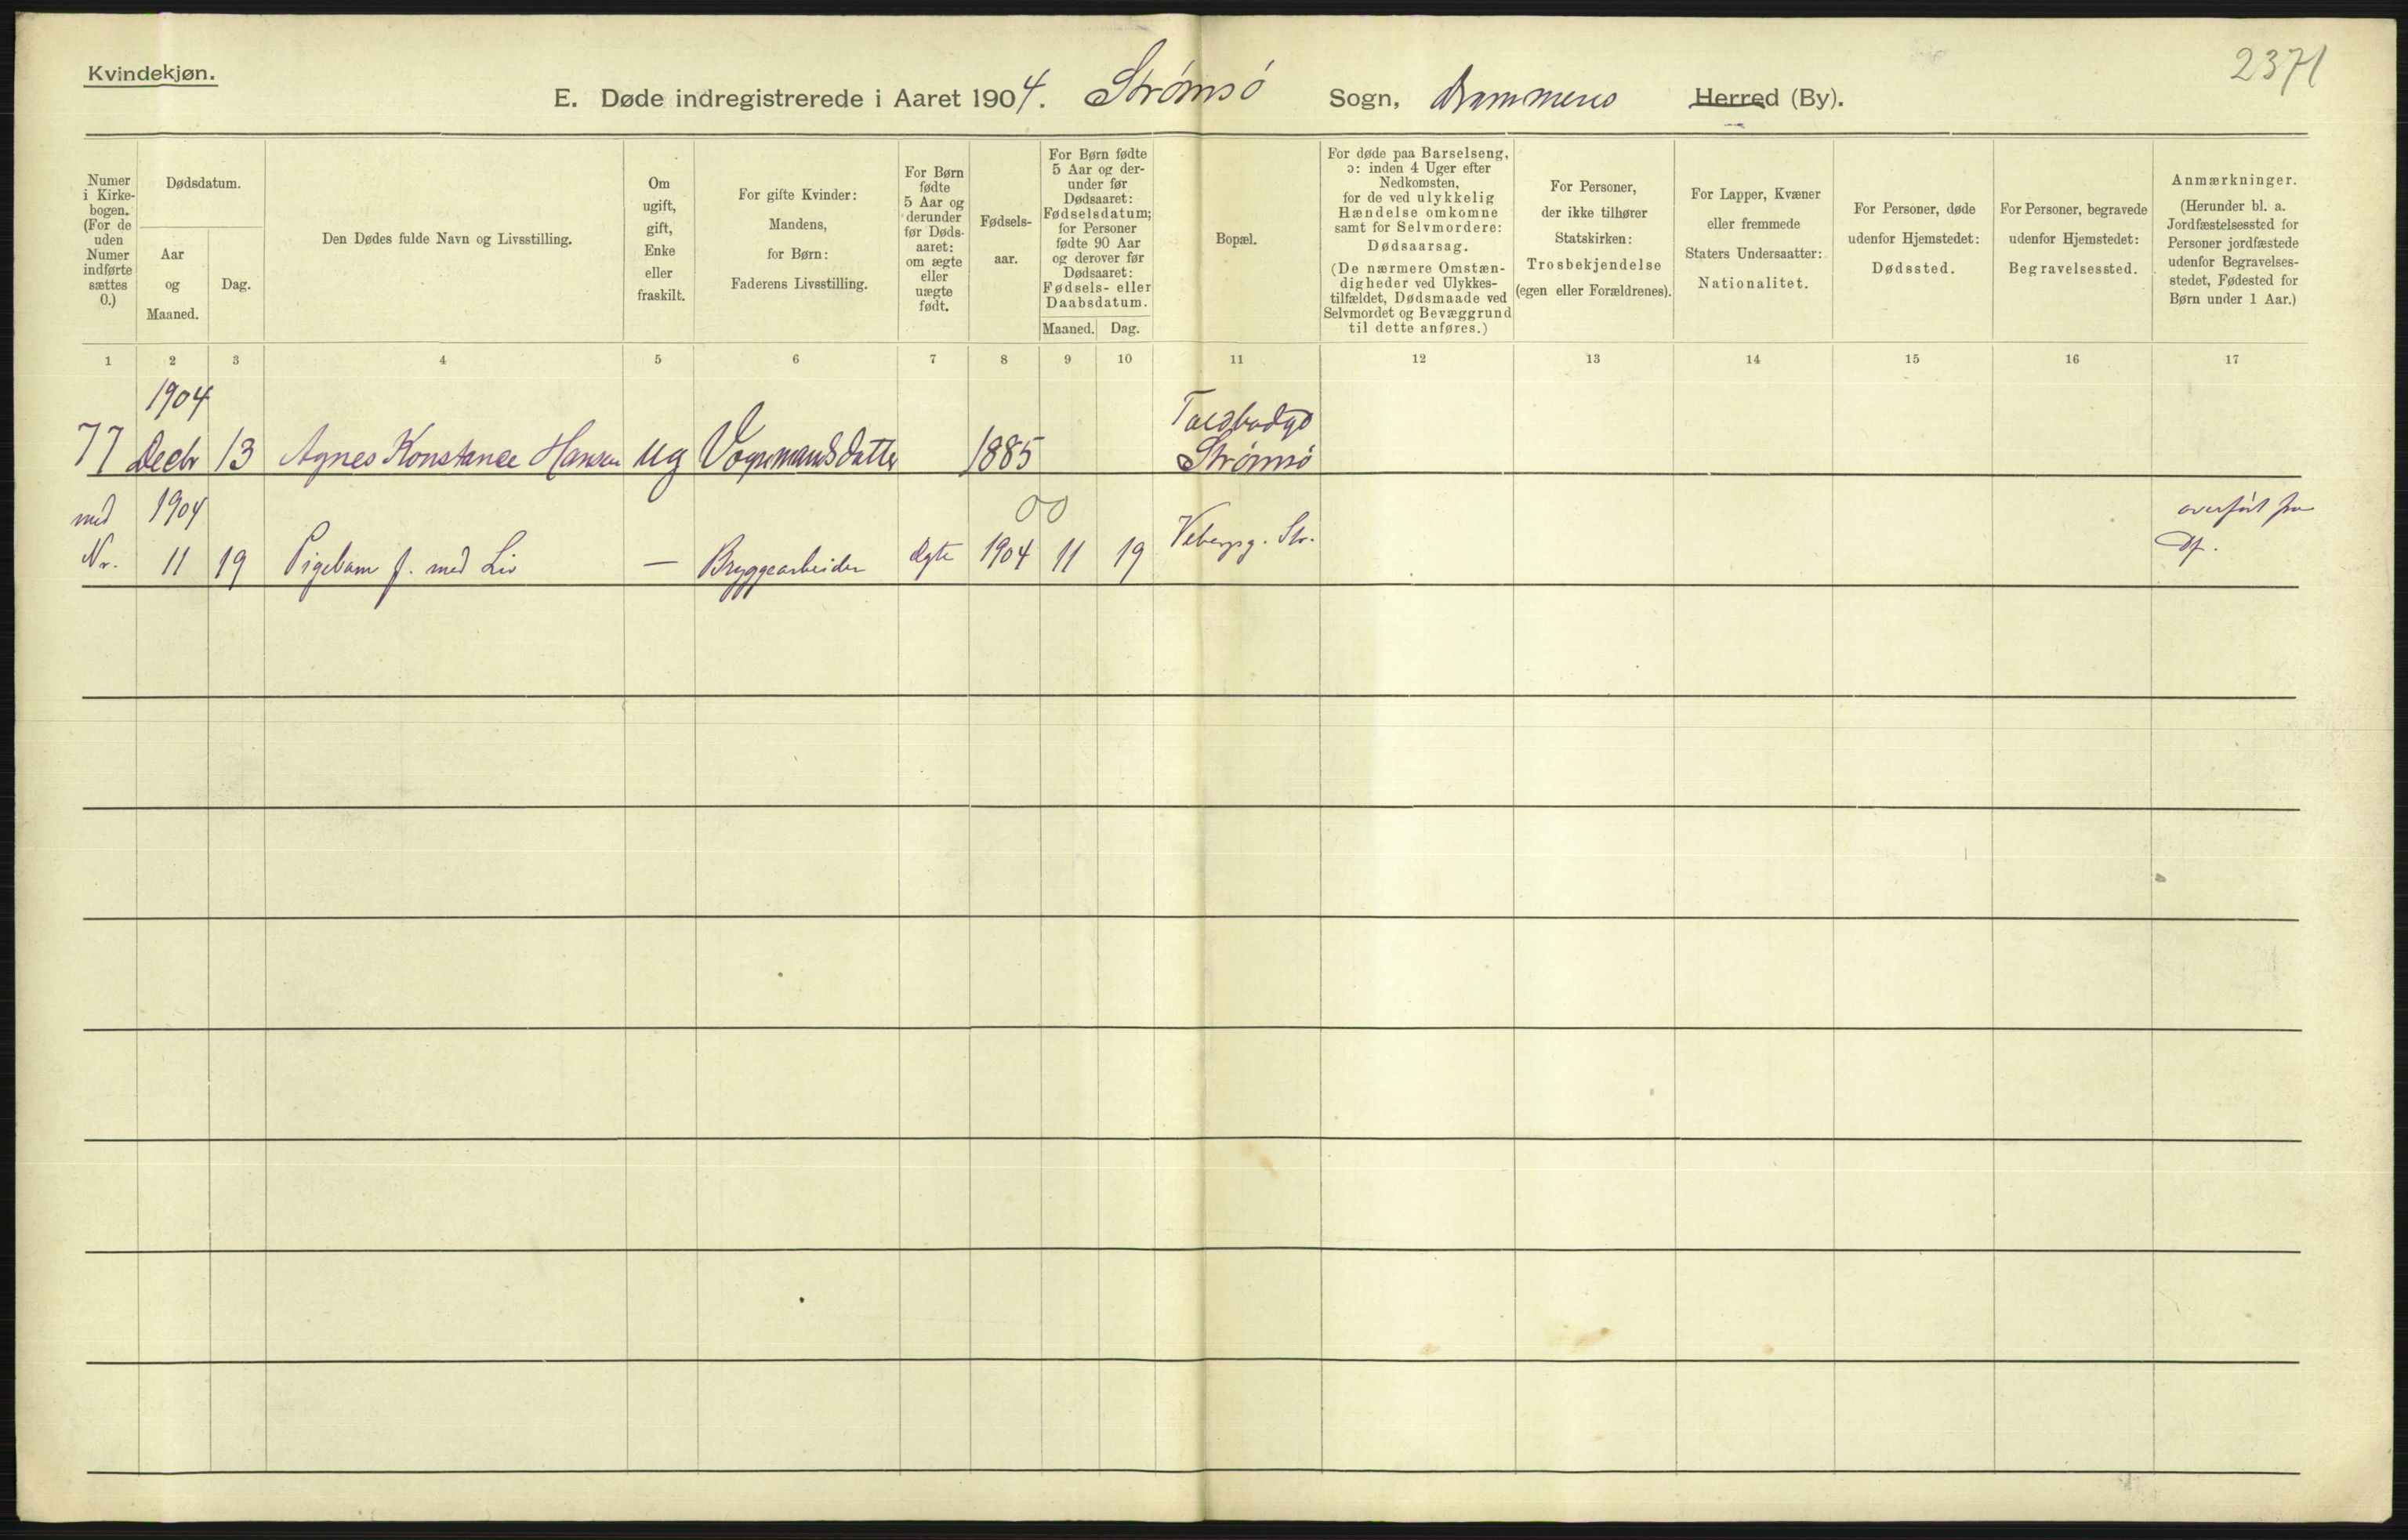 Kvindekjøn.
2371
E. Døde indregistrerede i Aaret 1904. Strømsø Sogn, Drammens Herred (By).
Numer
i Kirke-
bogen.
(For de
uden
Numer
indførte
sættes
0.)
Dødsdatum.
Aar
og
Maaned.
Dag.
Den Dødes fulde Navn og Livsstilling.
Om
ugift,
gift,
Enke
eller
fraskilt.
For gifte Kvinder:
Mandens,
for Børn:
Faderens Livsstilling.
For Børn
fødte
5 Aar og
derunder
før Døds-
aaret:
om ægte
eller
uægte
født.
Fødsels-
aar.
For Børn fødte
5 Aar og der-
under før
Dødsaaret:
Fødselsdatum;
for Personer
fødte 90 Aar
og derover før
Dødsaaret:
Fødsels- eller
Daabsdatum.
Maaned. Dag.
Bopæl.
For døde paa Barselseng,
ɔ: inden 4 Uger efter
Nedkomsten,
for de ved ulykkelig
Hændelse omkomne
samt for Selvmordere:
Dødsaarsag.
(De nærmere Omstæn-
digheder ved Ulykkes-
tilfældet, Dødsmaade ved
Selvmordet og Bevæggrund
til dette anføres.)
For Personer,
der ikke tilhører
Statskirken:
Trosbekjendelse
(egen eller Forældrenes).
For Lapper, Kvæner
eller fremmede
Staters Undersaatter:
Nationalitet.
For Personer, døde
udenfor Hjemstedet:
Dødssted.
For Personer, begravede
udenfor Hjemstedet:
Begravelsessted.
Anmærkninger.
(Herunder bl. a.
Jordfæstelsessted for
Personer jordfæstede
udenfor Begravelses-
stedet, Fødested for
Børn under 1 Aar.)
1 2 3 4 5 6 7 8 9 10 11 12 13 14 15 16 17
1904
Toldbodgd
77 Decbr 13 Agnes Konstance Hansen ug Vognmandsdatter 1885 Strømsø
med 1904 00 overført fra
Nr. 11 19 Pigebarn f. med Liv — Bryggearbeider ægte 1904 11 19 Str.